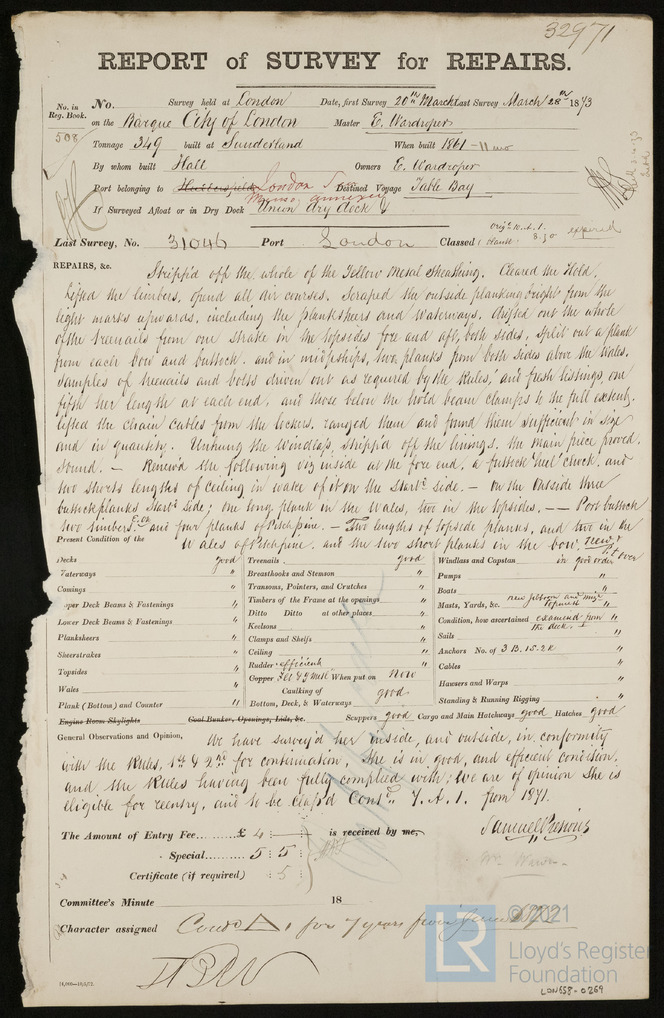 32971
REPORT of SURVEY for REPAIRS.
No. in Reg. Book. No. Survey held at London Date, first Survey 20th March Last Survey March 28th 1873
508 on the Barque City of London Master E. Wardroper
Tonnage 349 built at Sunderland When built 1861 - 11 mo
By whom built Hall Owners E. Wardroper
Port belonging to London Destined Voyage Table Bay
If Surveyed Afloat or in Dry Dock Union dry dock &
Last Survey, No. 31046 Port London Classed expired
REPAIRS, &c. Stripp'd off the whole of the Yellow Metal Sheathing. Cleared the Hold,
lifted the limbers, opend all air courses. Scraped the outside planking bright from the
light marks upwards, including the planksheers and Waterways. drifted out the whole
of the treenails from one strake in the topsides fore and aft, both sides, split out a plank
from each bow and buttock, and in midships, two planks from both sides above the Wales.
Samples of treenails and bolts driven out as required by the Rules, and fresh listings, one
fifth her length at each end, and those below the hold beam clamps to the full extent.
lifted the chain cables from the lockers, ranged them and found them sufficient in size
and in quantity. Unhung the Windlass, stripp'd off the linings, the main piece proved
Sound. — Renew'd the following viz inside at the fore end, a futtock "heel" chock, and
two shorts lengths of ceiling in wake of it on the Starbd side. — On the outside three
buttock planks Starbd side; one long plank in the Wales, two in the topsides. — — Port buttock
two timbers and four planks of Pitch pine. — Two lengths of topside planks, and two in the
Wales of Pitch pine. and the two short planks in the bow,
Present Condition of the
Decks good
Waterways "
Comings "
Upper Deck Beams & Fastenings "
Lower Deck Beams & Fastenings "
Planksheers "
Sheerstrakes "
Topsides "
Wales "
Plank (Bottom) and Counter "
Engine Room Skylights Coal Bunker, Openings, Lids, &c.
Treenails good
Breasthooks and Stemson "
Transoms, Pointers, and Crutches "
Timbers of the Frame at the openings "
Ditto Ditto at other places "
Keelsons "
Clamps and Shelfs "
Ceiling "
Rudder efficient
Copper When put on Now
Caulking of
Bottom, Deck, & Waterways good
Windlass and Capstan in good order
Pumps "
Boats "
Masts, Yards, &c. new jibboom and topmast "
Condition, how ascertained examined from the deck "
Sails "
Anchors No. of 3 B. 1S. 2K "
Cables "
Hawsers and Warps "
Standing & Running Rigging "
Scuppers good Cargo and Main Hatchways good Hatches good
General Observations and Opinion, We have survey'd her inside, and outside, in conformity
with the Rules, 1st & 2nd for continuation, She is in good, and efficient condition,
and the Rules having been fully complied with; we are of opinion she is
eligible for reentry, and to be class'd Contd. 7. A. 1. from 1871.
The Amount of Entry Fee £ 4 : : is received by me,
Special 5 : 5 :
Certificate (if required) : 5 :
Committee's Minute 18
Character assigned for 7 years from
© 2021
LR Lloyd's Register
Foundation
LON558-0269